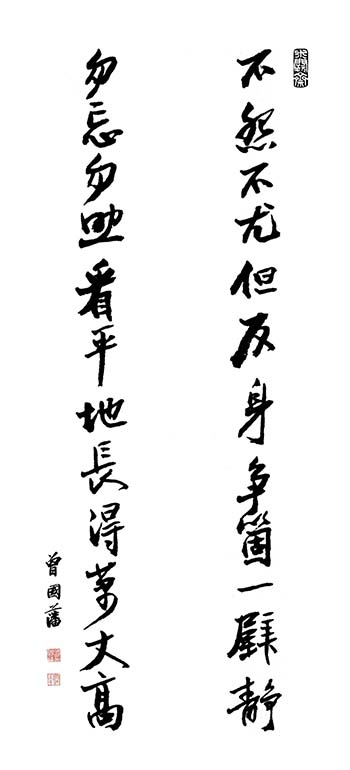 求闕齋
不怨不尤但反身争箇一壁静
勿忘勿助看平地長得萬丈高
曾國藩